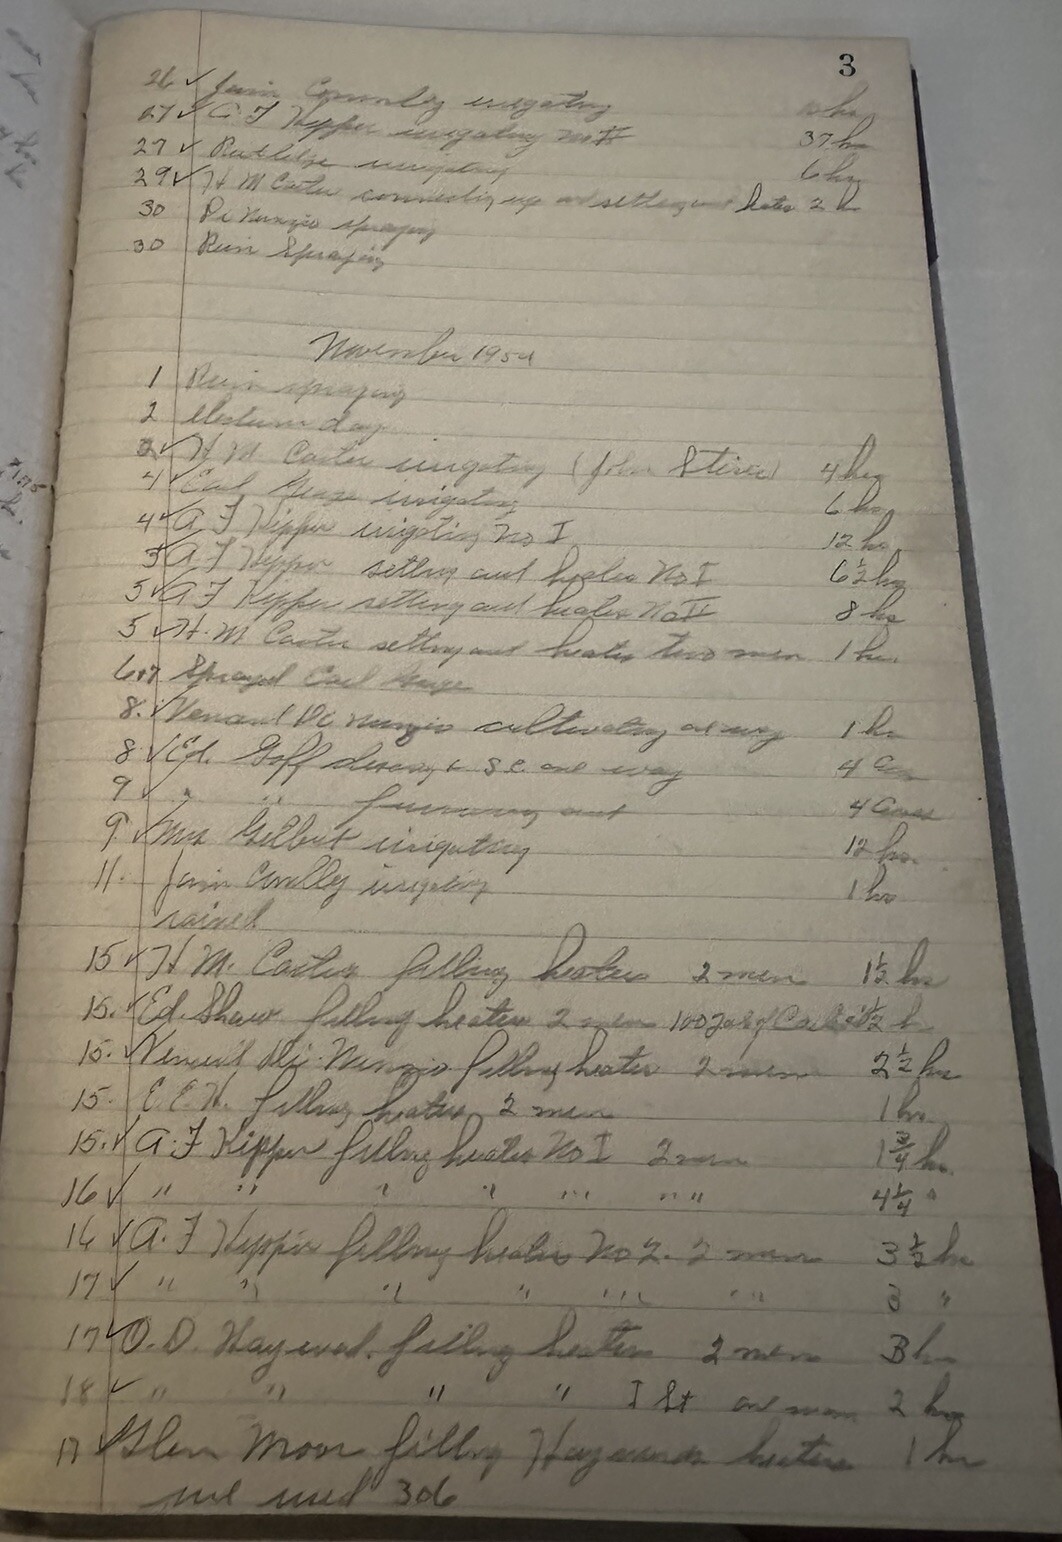 3
26 ✓ irrigating hr
27 ✓ A F Kipper irrigating No II 37 hr
27 ✓ Rutledge irrigating 6 hr
29 ✓ H M Carter connecting up and setting out heater 2 h
30 Di Nunzio spraying
30 Rein Spraying
November 1954
1 Rein spraying
2 day
2 ✓ H M Carter irrigating (John ) 4 hr
4 ✓ Earl irrigating 6 hr
4 ✓ A F Kipper irrigating No I 12 hr
5 A F Kipper setting out heater No I 6 1/2 hr
5 ✓ A F Kipper setting out heater No II 8 hr
5 ✓ H. M Carter setting out heater two men 1 hr.
6+7 Sprayed Earl
8. ✓ Di Nunzio cultivating one way 1 hr
8 ✓ Ed. Goff discing + S.C. one way 4
9 ✓ " " furrowing out 4 acres
9 ✓ Mrs Gilbert irrigating 12 hr.
11. irrigating 1 hr
rained
15 ✓ H M. Carter filling heaters 2 men 1 1/2 hr
15. ✓ Ed. Shaw filling heater 2 men 100 gal of 1/2 h
15. ✓ Di-Nunzio filling heater 2 men 2 1/2 hr
15. E. E. H. filling heater 2 men 1 hr
15. ✓ A. F Kipper filling heater No I 2 men 1 3/4 hr.
16 ✓ " " " " " " " " 4 1/4 "
16 ✓ A. F Kipper filling heater No 2. 2 men 3 1/2 hr
17 ✓ " " " " " " " " 3 "
17 ✓ O. D. Hayward. filling heater 2 men 3 hr
18 ✓ " " " " I St one man 2 hr
17 ✓ Glen Moor filling Haywards heaters 1 hr
used 306